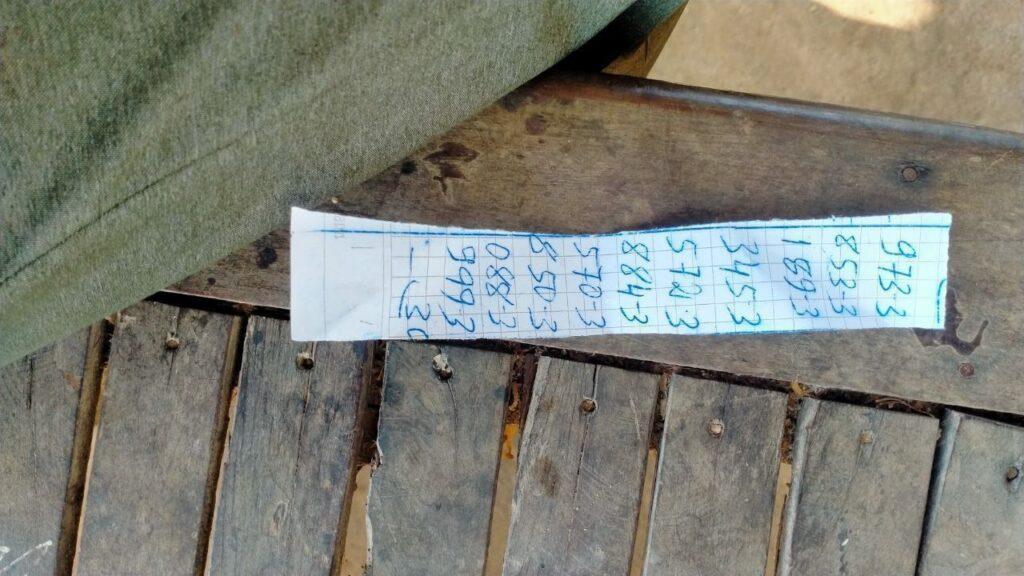 973.3
853.3
189.3
345.3
572.3
884.3
570.3
850.3
088.3
999.3
30